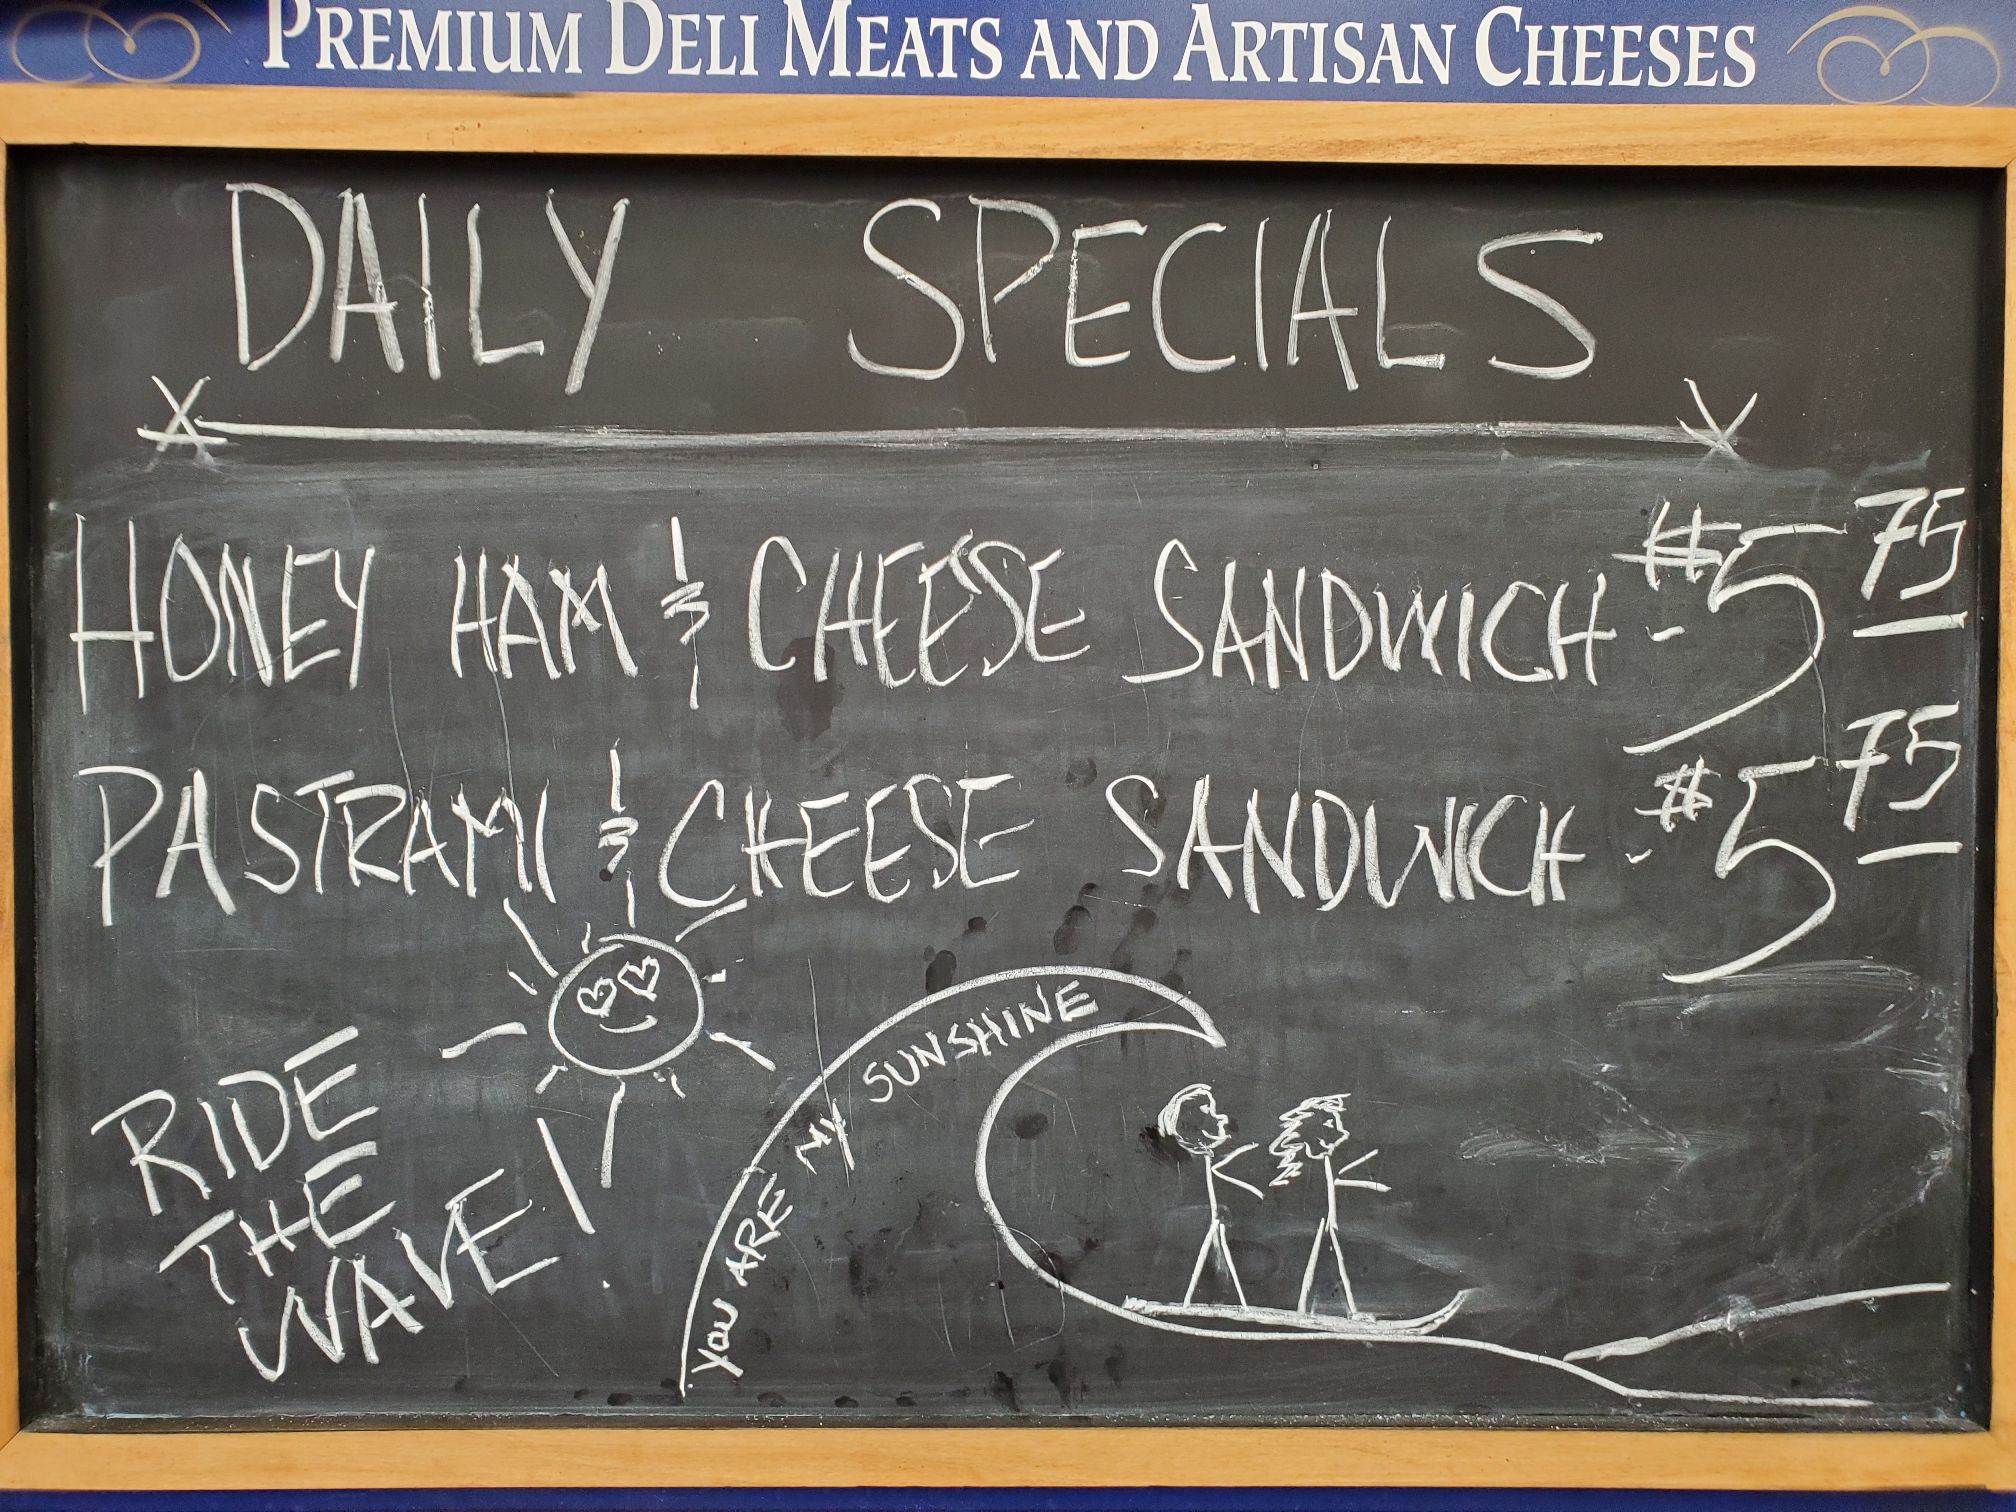 PREMIUM DELI MEATS AND ARTISAN CHEESES
DAILY SPECIALS
HONEY HAM & CHEESE SANDWICH - $5 75
PASTRAMI & CHEESE SANDWICH - $5 75
RIDE
THE
WAVE!
YOU ARE MY SUNSHINE